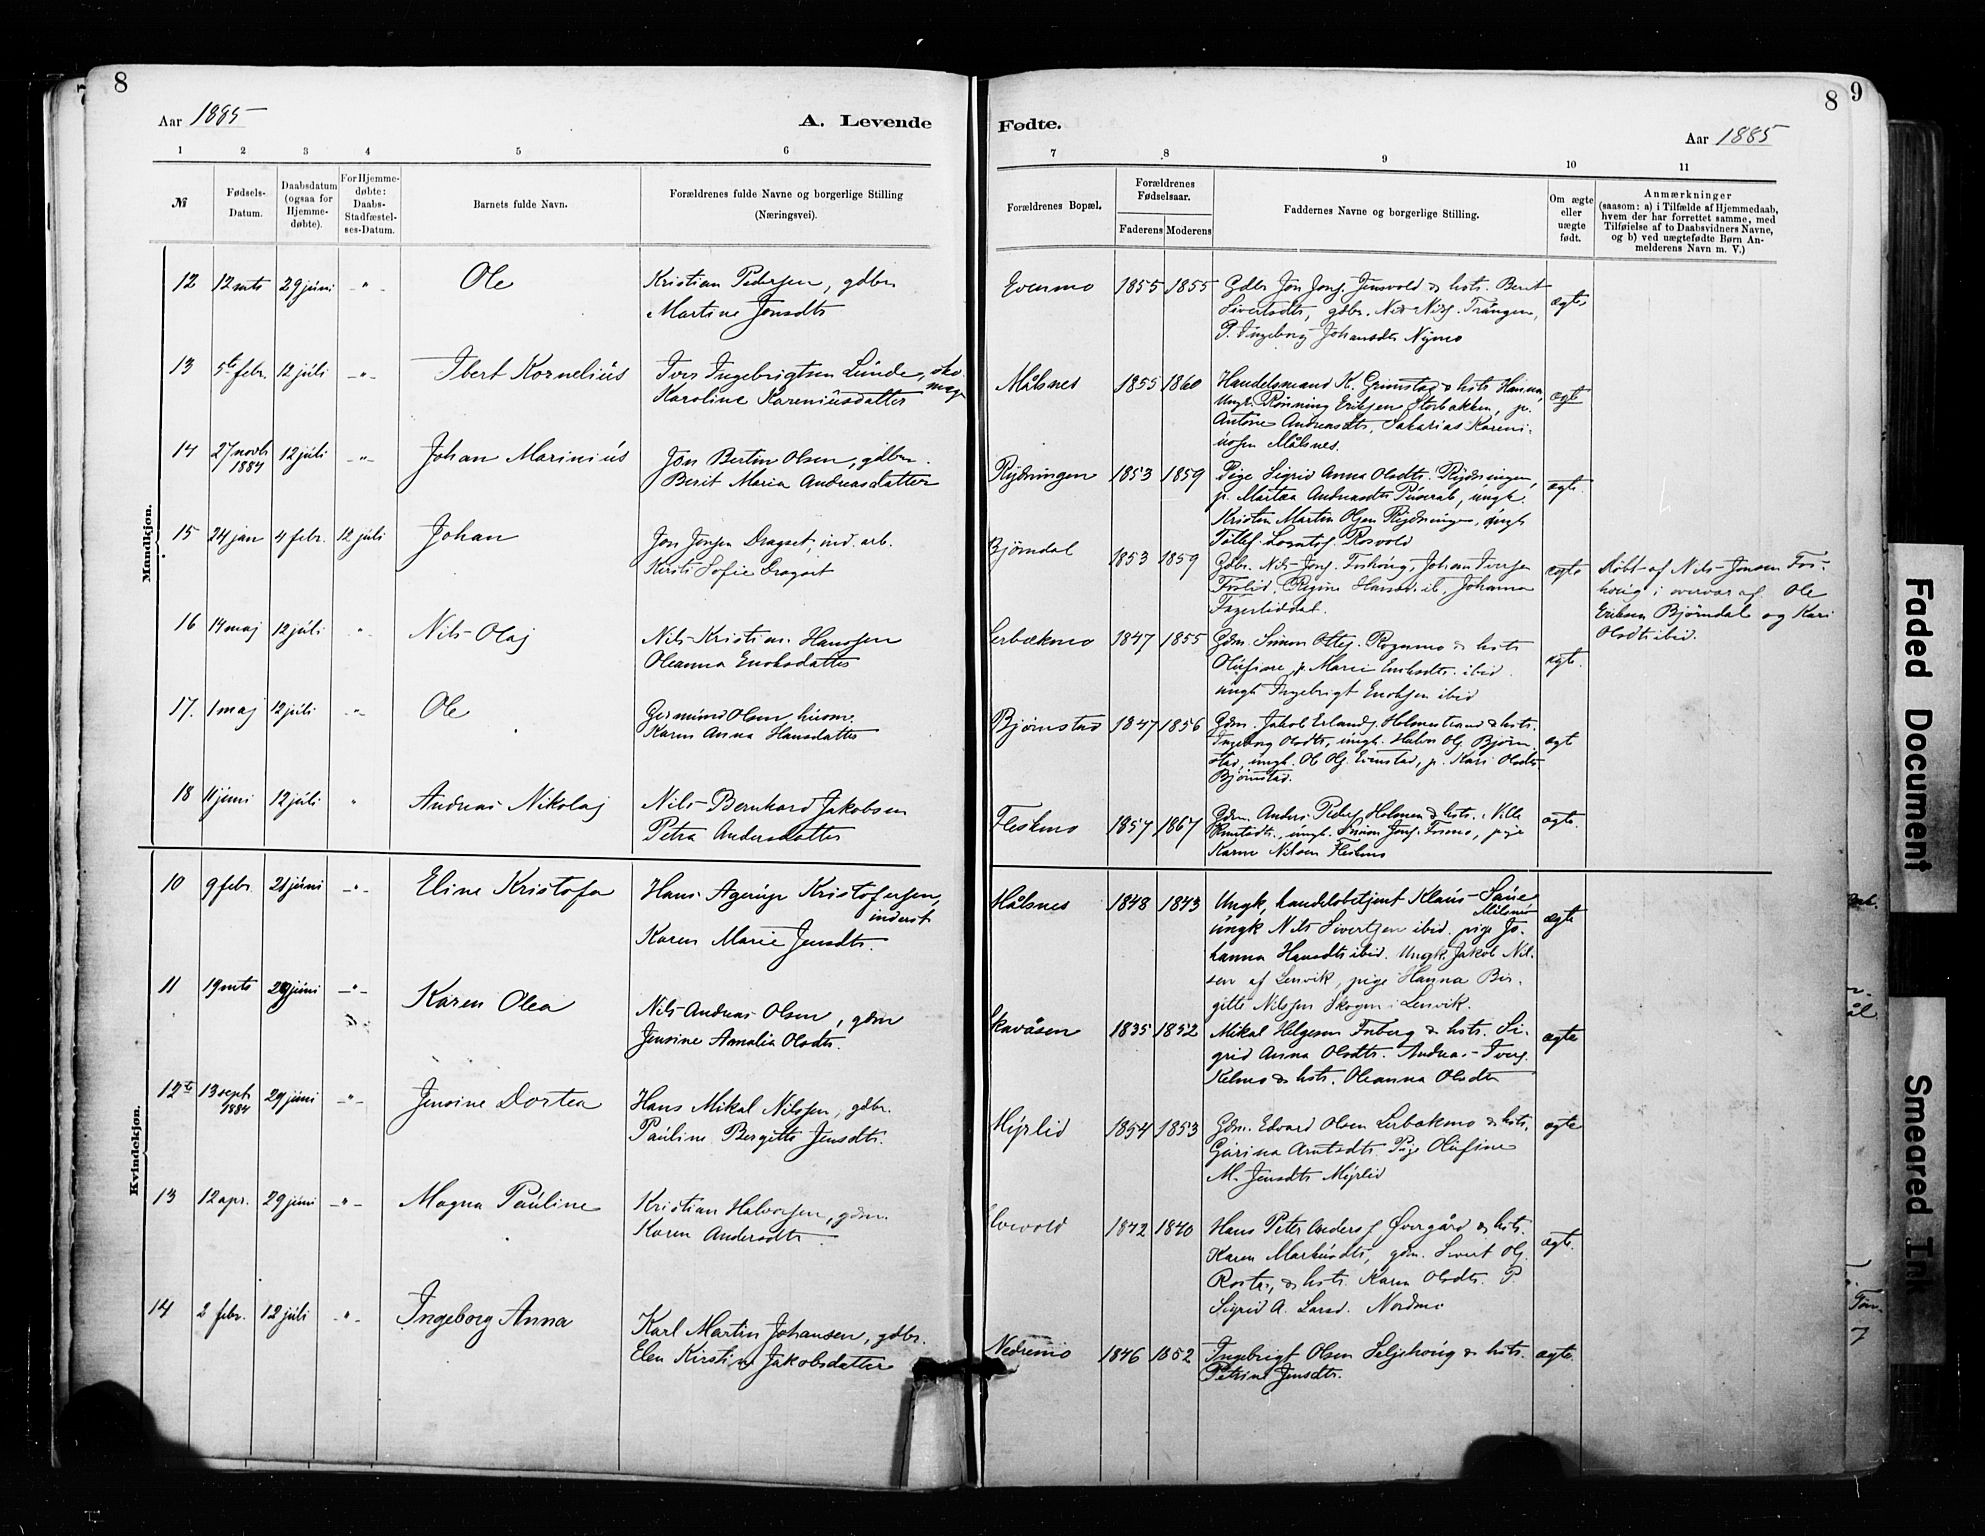 8
Aar 1885
A. Levende
1 2 3 4 5 6
№
Fødsels-Datum.
Daabsdatum (ogsaa for Hjemme-døbte).
For Hjemme-døbte: Daabs-Stadfæstel-ses-Datum.
Barnets fulde Navn.
Forældrenes fulde Navne og borgerlige Stilling (Næringsvei).
Mandkjøn.
12 12 mts 29 juni -"- Ole Kristian Pedersen, gdbr
Martine Jensdtr
13 5te febr. 12 juli -"- Ibert Kornelius Iver Ingebrigtsen Lunde, sko-
mag
Karoline Kareniusdatter
14 27 novbr 1884 12 juli -"- Johan Marinius Jon Bertin Olsen, gdbr.
Berit Maria Andreasdatter
15 24 jan 4 febr. 12 juli Johan Jon Jonsen Dragset, ind. arb.
Kirsti Sofie Dragset
16 14 maj 12 juli " Nils Olaj Nils Kristian Hanssen
Oleanna Enoksdatter
17. 1 maj 12 juli -"- Ole Germund Olsen husm.
Karen Anna Hansdatter
18 11 juni 12 juli " Andreas Nikolaj Nils Bernhard Jakobsen
Petra Andersdatter
Kvindekjøn.
10 9 febr. 21 juni -"- Eline Kristofa Hans Agerup Kristofersen,
inderst
Karen Marie Jensdtr.
11 19 mts 29 juni -"- Karen Olea Nils Andreas Olsen, gdm
Jensine Amalia Olsdtr.
12te 13 sept 1884 29 juni -"- Jensine Dortea Hans Mikal Nilssen, gdbr.
Pauline Bergitte Jensdtr.
13 12 apr. 29 juni -"- Magna Pauline Kristian Halvorsen, gdm.
Karen Andersdtr
14 2 febr. 12 juli -"- Ingeborg Anna Karl Martin Johansen, gdbr.
Elen Kirstine Jakobsdatter
8 9
Fødte.
Aar 1885
7 8 9 10 11
Forældrenes Bopæl.
Forældrenes Fødselsaar.
Faderens Moderens
Faddernes Navne og borgerlige Stilling.
Om ægte eller uægte født.
Anmærkninger
(saasom: a) i Tilfælde af Hjemmedaab,
hvem der har forrettet samme, med
Tilføielse af to Daabsvidners Navne,
og b) ved uægtefødte Børn An-
melderens Navn m. V.)
Evenmo 1855 1855 Gdbr Jon Jons. Jensvold & hstr. Berit
Sivertsdtr, gdbr. Nils Nils. Trangen,
P. Ingeborg Johansdtr Nymo
ægte
Målsnes 1855 1860 Handelsmand K. Grimstad & hstr Hanna,
Ungk. Rønning Eriksen Storbakken, p.
Antone Andreasdtr, Sakarias Kareni-
ussen Målsnes.
ægte
Rydningen 1853 1859 Pige Sigrid Anna Olsdtr. Rydningen,
p. Martea Andreasdtr, ungk.
Kristen Martin Olsen Rydningen, ungk
Tollef Rosvold
ægte.
Bjørndal 1853 1859 Gdbr. Nils Jons. Foshoug, Johan Iversen
Foslid, Regine Hansdtr ib, Johanna
Fagerliddal.
ægte
Døbt af Nils Jonsen Fos-
houg i overvær af Ole
Eriksen Bjørndal og Kari
Olsdtr ibid.
Lerbækmo 1847 1855 Gdm. Simon Ottes. Rognmo & hstr
Olufine, p. Marie Enoksdtr. ibid.
ungk Ingebrigt Enoksen ibid
ægte.
Bjørnstad 1847 1856 Gdm. Jakob Erlands. Holmestrand & hstr.
Ingeborg Olsdtr, ungk. Halvor Ols. Bjørn-
stad, ungk. Ol. Ols. Evenstad, p. Kari Olsdtr
Bjørnstad.
ægt
Fleskmo 1857 1867 Gdm. Anders Peders. Holmen & hstr. Ville
Knutsdtr., ungk. Simon Jons. Fosmo, pige
Karen Nilsen Fleskmo
ægte.
Målsnes 1848 1843 Ungk, handelsbetjent Klaus Saue
Målsnes
ungk Nils Sivertsen ibid. pige Jo-
hanna Hansdtr ibid. Ungk. Jakob Nil-
sen af Lenvik, pige Hanna Bir-
gitte Nilssen Skogen i Lenvik.
ægte
Skavåsen 1835 1852 Mikal Helgesen Friberg & hstr. Si-
grid Anna Olsdtr. Andreas Ivers.
Kelmo & hstr. Oleanna Olsdtr
ægte
Myrlid 1854 1853 Gdm. Edvard Olsen Lerbækmo & hstr.
Gurina Arntsdtr. Pige Olufine
M. Jensdtr Myrlid
ægte
Elvevold 1842 1840 Hans Peter Anders. Øvergård & hstr.
Karen Markusdtr, gdm. Sivert Ols.
Rostad, & hstr. Karen Olsdtr. P
Sigrid A. Larsd. Nordmo
ægte.
Nedremo 1846 1852 Ingebrigt Olsen Seljehoug & hstr.
Petrine Jensdtr.
ægte.
Faded Document
Smeared Ink